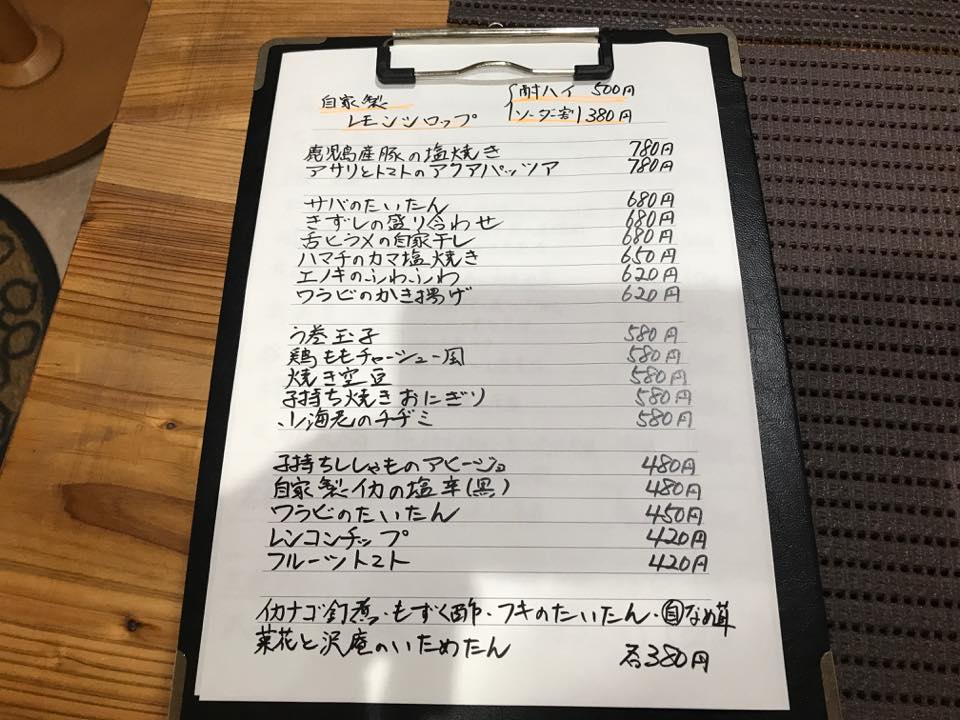 自家製 酎ハイ 500円
レモンシロップ ソーダー割 380円
鹿児島産豚の塩焼き 780円
アサリとトマトのアクアパッツア 780円
サバのたいたん 680円
きずしの盛り合わせ 680円
舌ヒラメの自家干し 680円
ハマチのカマ塩焼き 650円
エノキのふわふわ 620円
ワラビのかき揚げ 620円
う巻玉子 580円
鶏ももチャーシュー風 580円
焼き空豆 580円
子持ち焼きおにぎり 580円
小海老のチヂミ 580円
子持ちししゃものアヒージョ 480円
自家製イカの塩辛(黒) 480円
ワラビのたいたん 450円
レンコンチップ 420円
フルーツトマト 420円
イカナゴ釘煮・もずく酢・フキのたいたん・自なめ茸
菜花と沢庵のいためたん 各380円